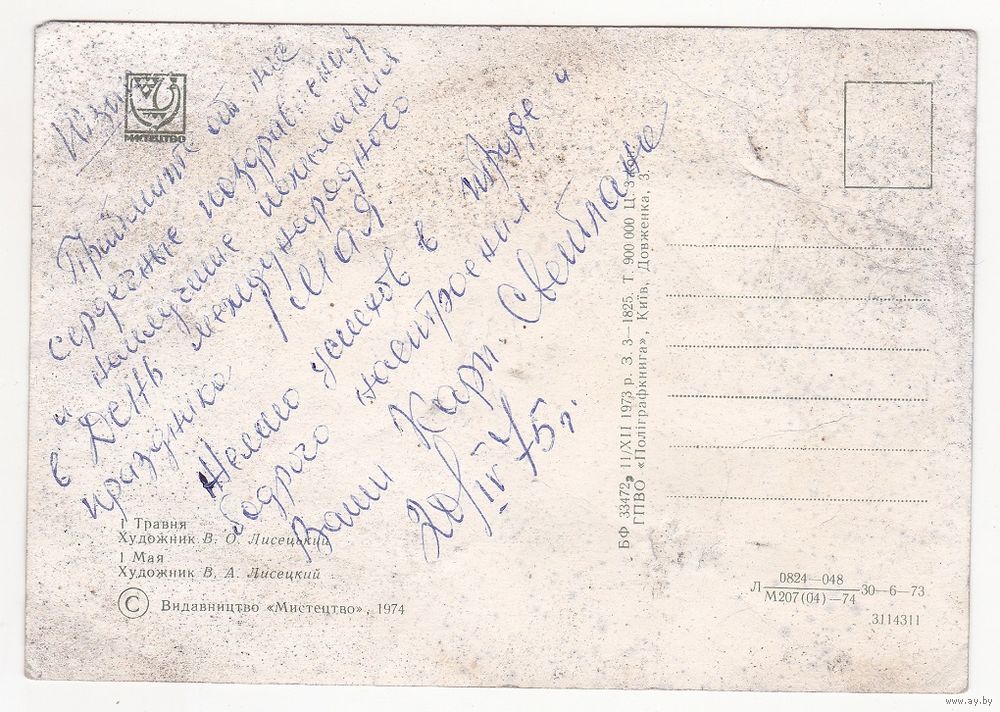 МИСТЕЦТВО
Приймите от нас
сердечные поздравления
и наилучшие пожелания
в День международного
праздника 1 мая.
Желаю успехов в труде и
бодрого настроения
Ваши Карп. Светлане
20/IV 75 г.
1 Травня
Художник В. О. Лисецький
1 Мая
Художник В. А. Лисецкий
© Видавництво «Мистецтво», 1974
БФ 33472, 11/XII 1973 р. З. 3—1825. Т. 900 000 Ц. 3 коп.
ГПВО «Поліграфкнига», Київ, Довженка, 3.
Л 0824—048 30—6—73
М207(04)—74
3114311
www.ay.by